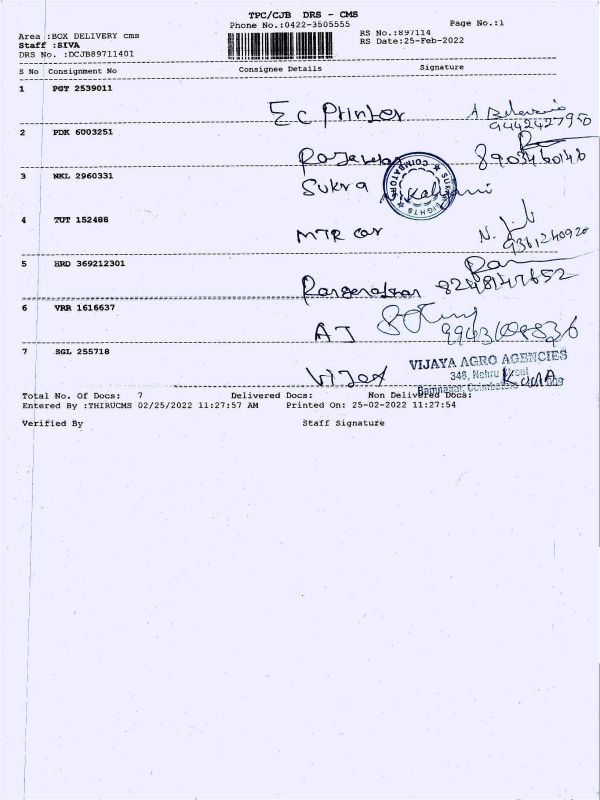 TPC/CJB DRS - CMS
Phone No.:0422-3505555
Page No.:1
Area :BOX DELIVERY cms
RS No.:897114
Staff :SIVA
RS Date:25-Feb-2022
DRS No. :DCJB89711401
S No Consignment No Consignee Details Signature
1 PGT 2539011
Ec Printer
9442427950
2 PDK 6003251
8903460146
3 NKL 2960331
Sukra
COIMBATORE
4 TUT 152488
MTR car
N.
9361240920
5 HRD 369212301
8248147652
6 VRR 1616637
AJ
7 SGL 255718
Vijay
VIJAYA AGRO AGENCIES
348, Nehru Street
Ramnagar, Coimbatore
Total No. Of Docs: 7 Delivered Docs: Non Delivered Docs:
Entered By :THIRUCMS 02/25/2022 11:27:57 AM Printed On: 25-02-2022 11:27:54
Verified By Staff Signature